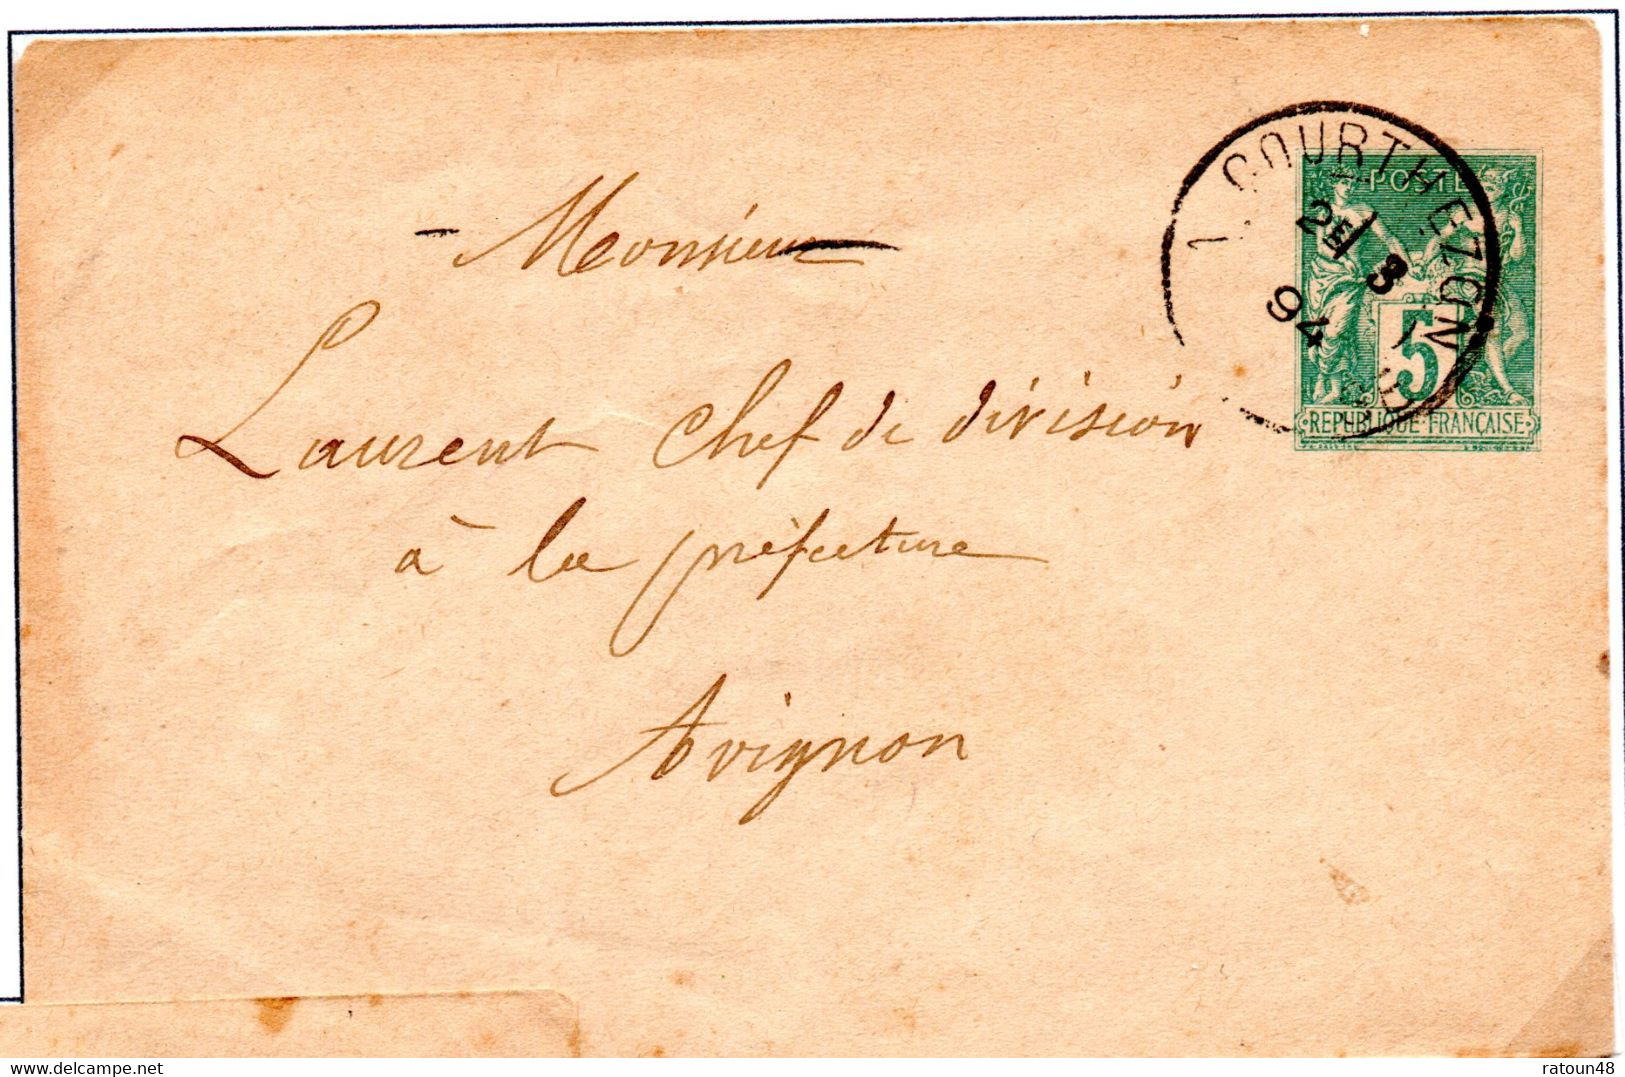 COURTHEZON
2E
3
94
POSTE
5
REPUBLIQUE FRANÇAISE
- Monsieur
Laurent Chef de division
à la préfecture
Avignon
delcampe.net
ratoun48